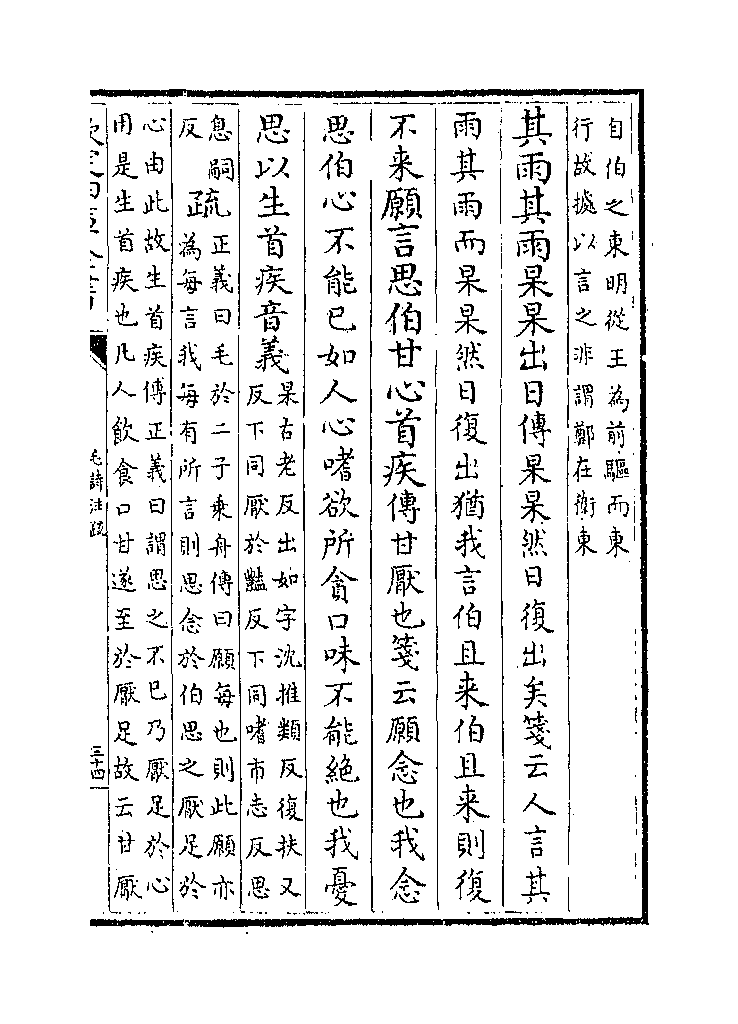 自伯之東明從王為前驅而東
行故據以言之非謂鄭在衞東
其雨其雨杲杲出日傳杲杲然日復出矣箋云人言其
雨其雨而杲杲然日復出猶我言伯且来伯且来則復
不来願言思伯甘心首疾傳甘厭也箋云願念也我念
思伯心不能已如人心嗜欲所貪口味不能絶也我憂
思以生首疾音義
杲古老反出如字沈推類反復扶又
反下同厭於豔反下同嗜市志反思
息嗣
反
疏
正義曰毛於二子乘舟傳曰願每也則此願亦
為每言我每有所言則思念於伯思之厭足於
心由此故生首疾傳正義曰謂思之不已乃厭足於心
用是生首疾也凡人飲食口甘遂至於厭足故云甘厭
毛詩注疏
三十四